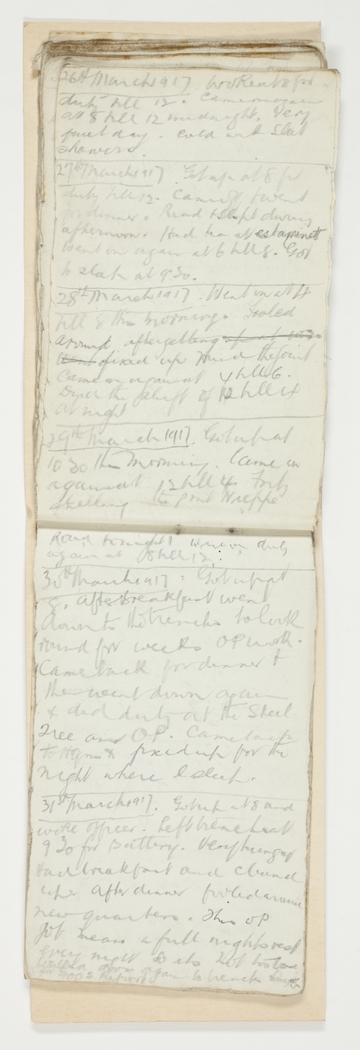 26th March 1917. Woken at 8 for
duty till 12. Came on again
at 8 till 12 midnight. Very
quiet day. Cold and Sleet
showers.
27th March 1917. Got up at 8 for
duty till 12. Came off & went
for dinner. Read & slept during
afternoon. Had tea at estaminet
Went on again at 6 till 8. Got
to sleep at 9.30.
28th March 1917. Went on at 4
till 8 this morning. Fooled
around after getting
fixed up round the joint
Came on again at 4 till 6.
Did the shift of 12 till 4
at night
29th March 1917. Got up at
10.30 this morning. Came on
again at 12 till 4. Fritz
shelling the
Road tonight. on duty
again at 8 till 12.
30th March 1917. Got up at
8. After breakfast went
down to the trenches to look
round for weeks OP work.
Came back for dinner &
then went down again
& did duty at the Steel
Tree and OP. Came back
to Hqrs & fixed up for the
night where I sleep.
31st March 1917. Got up at 8 and
woke officer. Left trench at
9.30 for Battery. Very hungry
had breakfast and cleaned
up. After dinner fooled around
new quarters. This OP
job means a full nights rest
every night so its not too bad
Walked down again to trenches